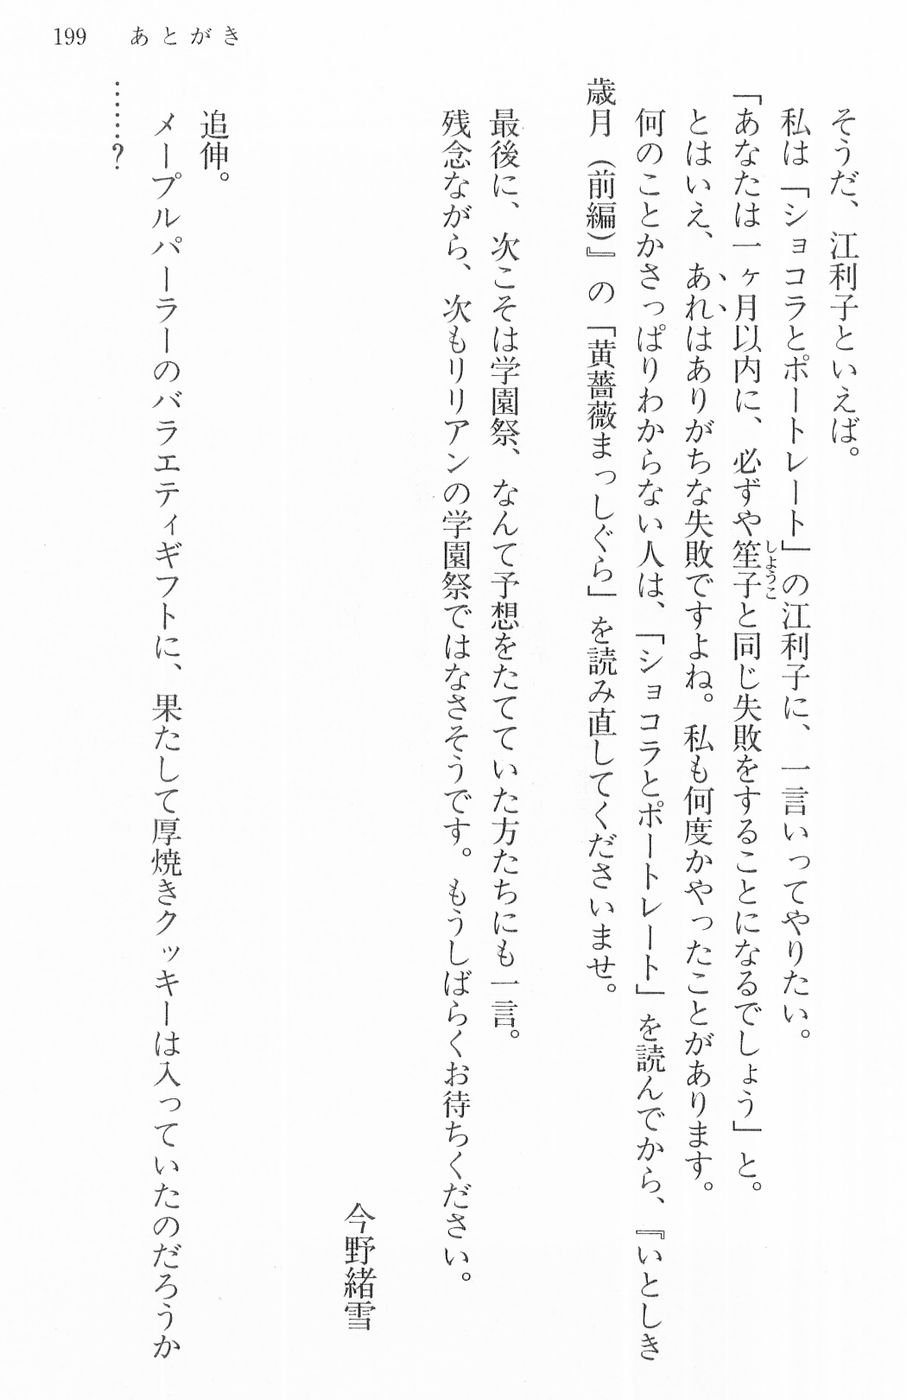 199　あとがき
そうだ、江利子といえば。
私は「ショコラとポートレート」の江利子に、一言いってやりたい。
「あなたは一ヶ月以内に、必ずや笙子しょうこと同じ失敗をすることになるでしょう」と。
とはいえ、あれはありがちな失敗ですよね。私も何度かやったことがあります。
何のことかさっぱりわからない人は、「ショコラとポートレート」を読んでから、『いとしき
歳月（前編）』の「黄薔薇まっしぐら」を読み直してくださいませ。
最後に、次こそは学園祭、なんて予想をたてていた方たちにも一言。
残念ながら、次もリリアンの学園祭ではなさそうです。もうしばらくお待ちください。
今野緒雪
追伸。
メープルパーラーのバラエティギフトに、果たして厚焼きクッキーは入っていたのだろうか
……？